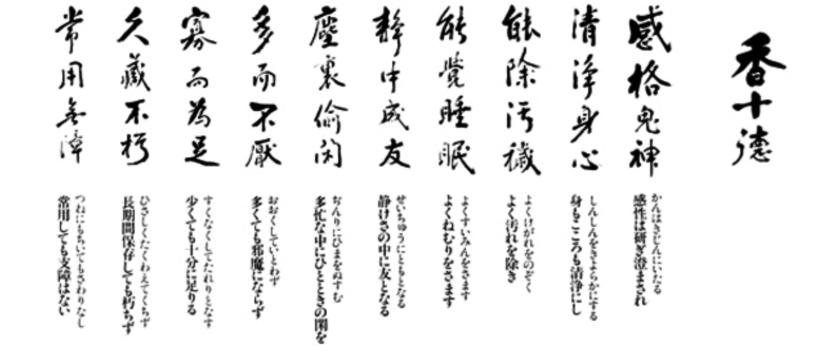 香十徳
感格鬼神
かんはきじんにいたる
感性は研ぎ澄まされ
清浄身心
しんしんをきよらかにする
身もこころも清浄にし
能除汚穢
よくけがれをのぞく
よく汚れを除き
能覺睡眠
よくすいみんをさます
よくねむりをさます
静中成友
せいちゅうにともとなる
静けさの中に友となる
塵裏偸閑
じんりにひまをぬすむ
多忙な中にひとときの閑を
多而不厭
おおくしていとわず
多くても邪魔にならず
寡而為足
すくなくしてたれりとなす
少くても十分に足りる
久蔵不朽
ひさしくたくわえてくちず
長期間保存しても朽ちず
常用無障
つねにもちいてもさわりなし
常用しても支障はない